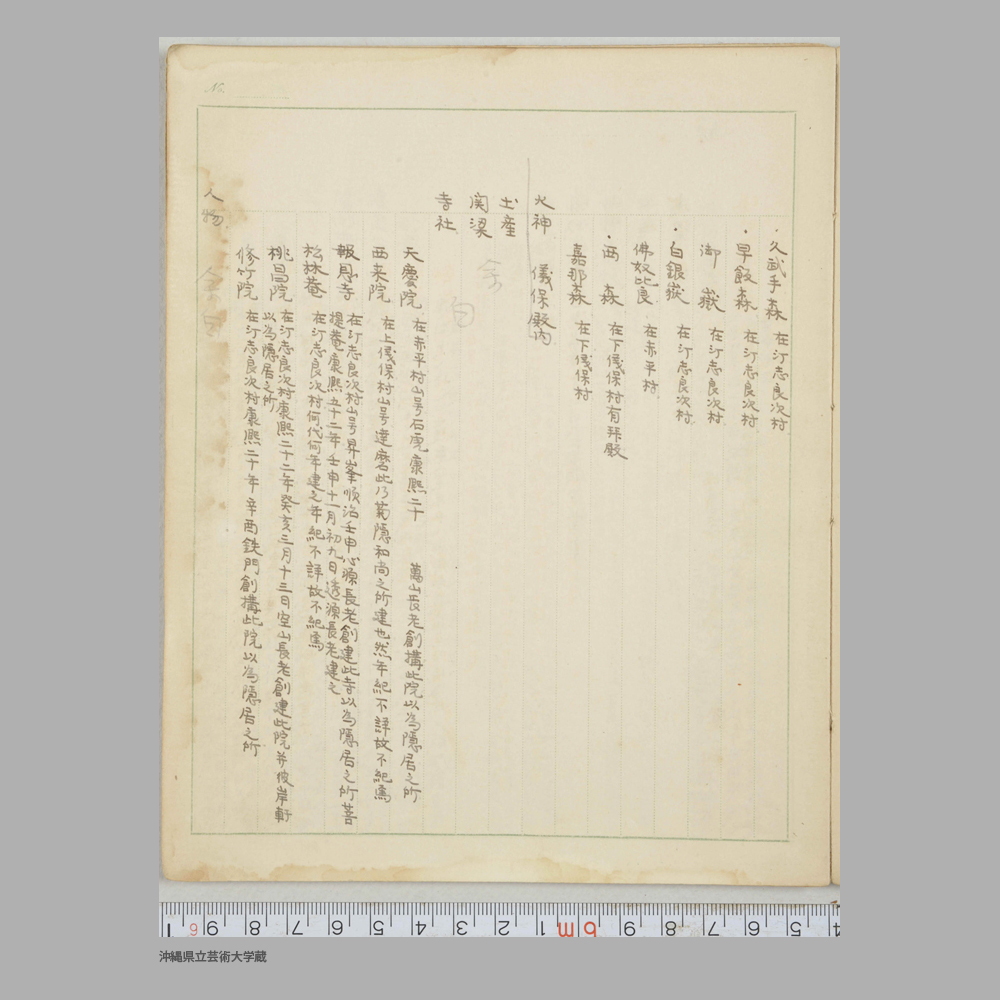 久武手森 在汀志良次村
・早飯森 在汀志良次村
御嶽 在汀志良次村
・白銀嶽 在汀志良次村
佛奴比良 在赤平村
・西森 在下儀保村有拜殿
嘉那森 在下儀保村
火神 儀保殿内
土産
関梁
寺社
天慶院 在赤平村山号石虎康熙二十 萬山長老創搆此院以為隱居之所
西来院 在上儀保村山号達磨此乃菊隠和尚之所建也然年紀不詳故不紀焉
報恩寺 在汀志良次村山号昇峯順治壬申心源長老創建此寺以為隱居之所菩
提養康熙五十二年壬申十一月初九日透源長老建之
松林菴 在汀志良次村何代何年建之年紀不詳故不紀焉
桃昌院 在汀志良次村康熙二十二年癸亥三月十三日空山長老創建此院并彼岸軒
以為隱居之所
修竹院 在汀志良次村康熙二十年辛酉鉄門創搆此院以為隱居之所
人物
No.
沖縄県立芸術大学蔵